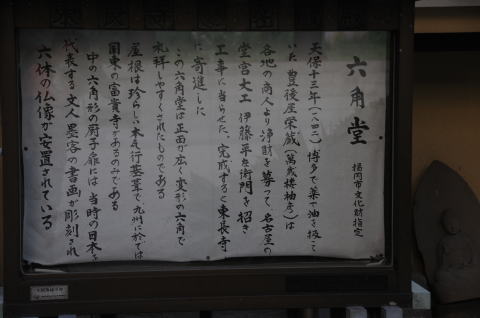 六角堂
福岡市文化財指定
天保十三年(一八四二)博多で薬や油を扱って
いた豊後屋栄蔵(萬歳楼柚彦)は
各地の商人より浄財を募って、名古屋の
堂宮大工 伊藤平左衛門を招き
工事に当らせた、完成すると東長寺
に寄進した
この六角堂は正面が広く変形の六角で
礼拝しやすくされたものである
屋根は珍らしい本瓦行基葺で、九州に於ては
国東の富貴寺があるのみである
中の六角形の厨子扉には、当時の日本を
代表する文人墨客の書画が彫刻され
六体の仏像が安置されている